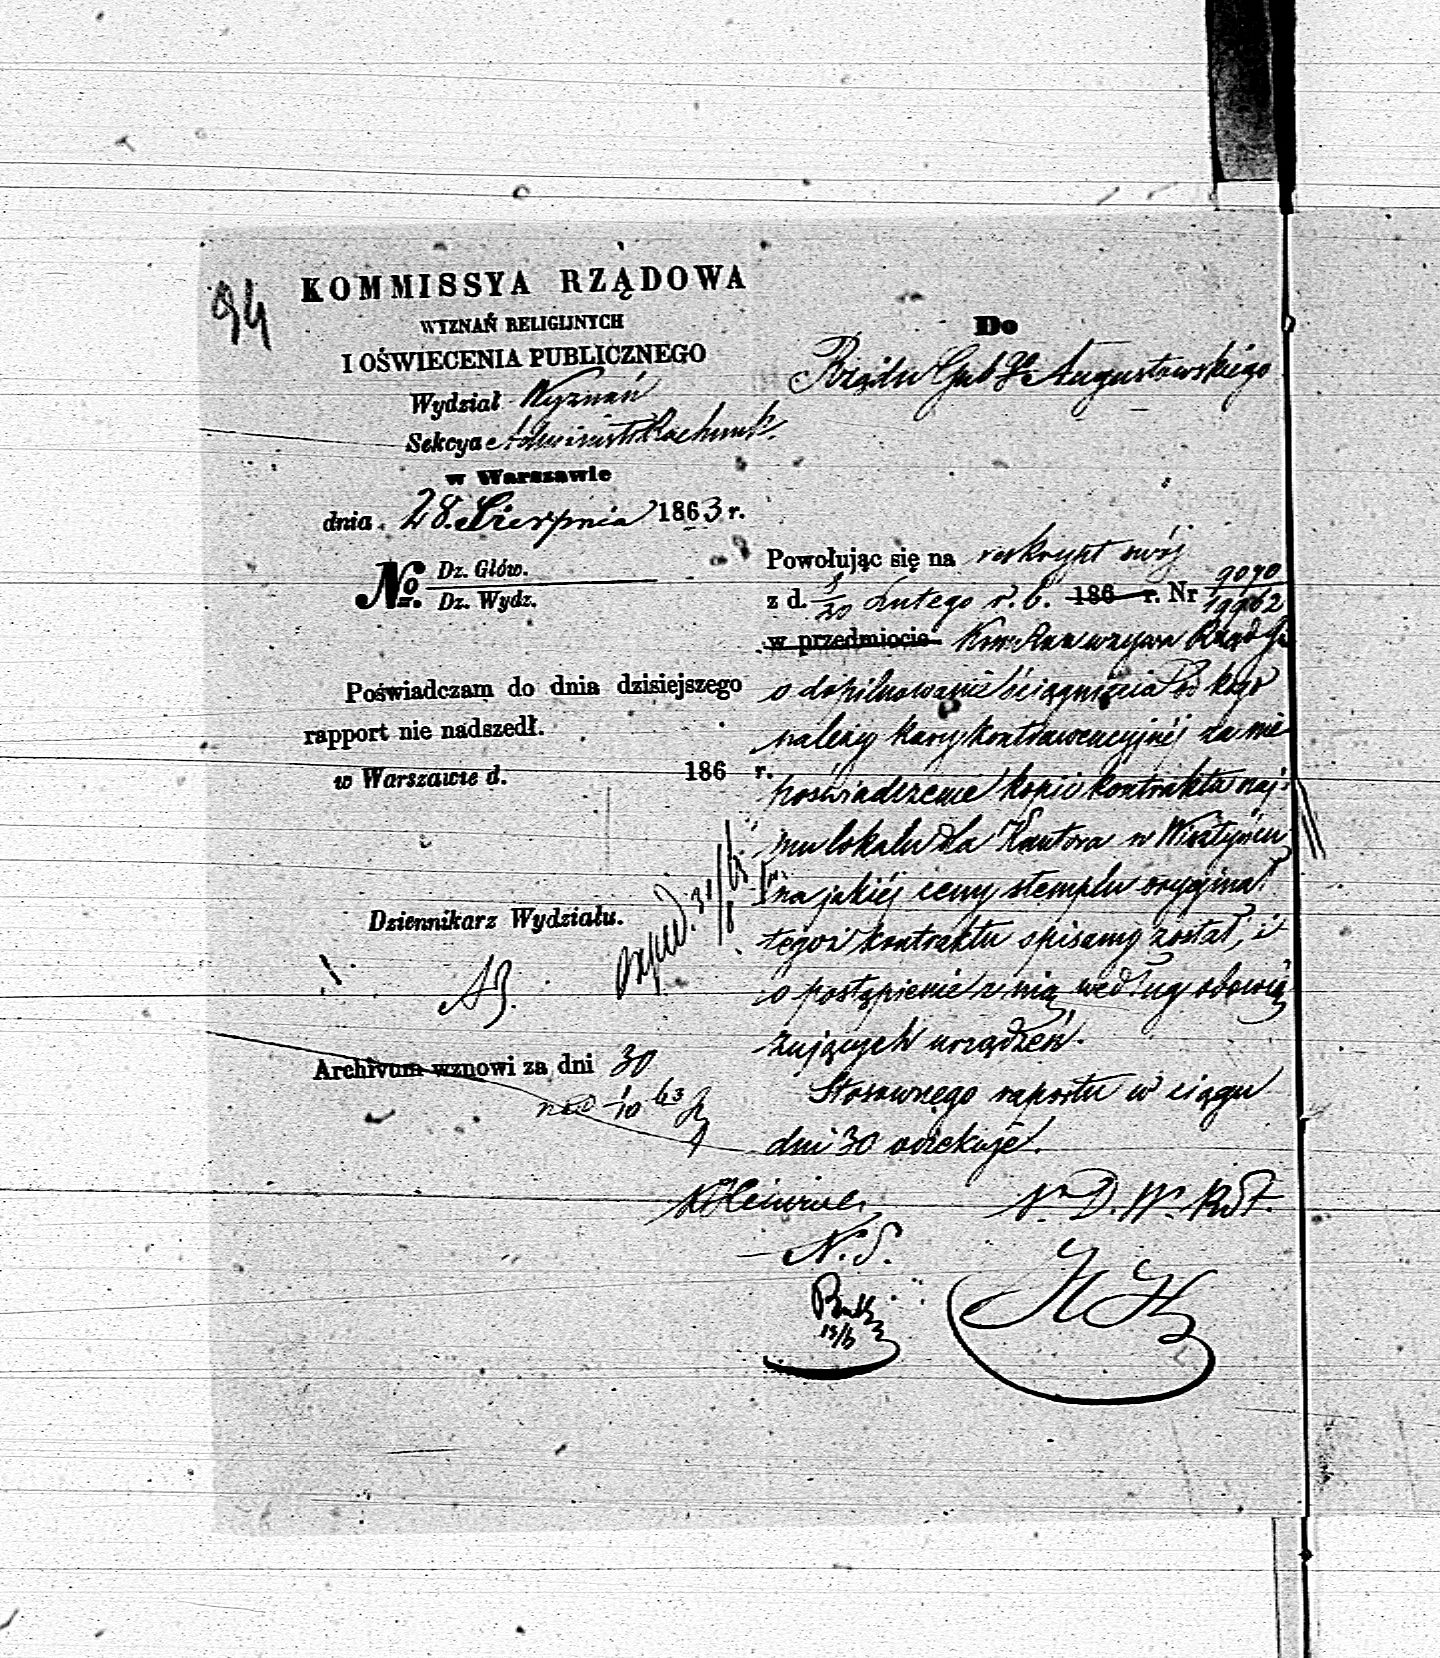 94
KOMMISSYA RZĄDOWA
WYZNAŃ RELIGIJNYCH
I OŚWIECENIA PUBLICZNEGO
Wydział Wyznań
Sekcya Administr Rachunk.
w Warszawie
dnia 28 Sierpnia 1863 r.
No. Dz. Głów.
Dz. Wydz.
Poświadczam do dnia dzisiejszego
rapport nie nadszedł.
w Warszawie d. 186 r.
Dziennikarz Wydziału.
Archivum wznowi za dni 30
Do
Rządu Gub Go Augustowskiego
Powołując się na reskrypt swój
z d. 8/20 Lutego r. b. 186 r. Nr 9070/19962
w przedmiocie Kom Rzą wzywa Rząd Gu
o dopilnowanie ściągnięcia od kogo
należy kary kontrawencyjnéj za nie
poświadczenie kopii kontraktu naj
mu lokalu dla Kantora w Wisztyńcu
na jakiéj ceny stemplu orygina
tegoż kontraktu spisany został, i
o postąpienie z nią według obowią
zujących urządzeń.
Stosownego raportu w ciągu
dni 30 oczekuje.
N. S.